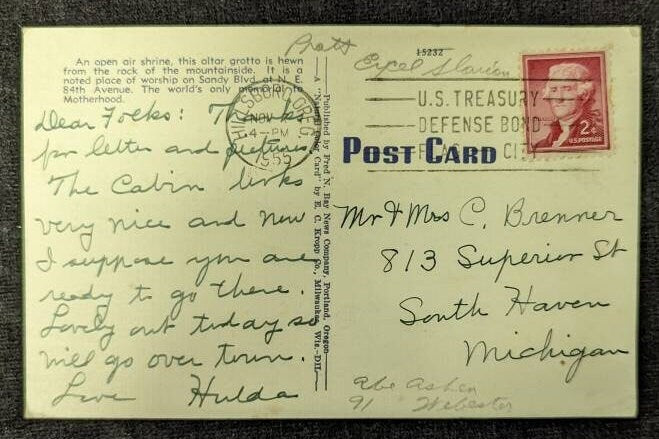 An open air shrine, this altar grotto is hewn
from the rock of the mountainside. It is a
noted place of worship on Sandy Blvd. at N. E.
84th Avenue. The world's only memorial to
Motherhood.
Dear Folks: Thanks
for letter and pictures
The Cabin looks
very nice and now
I suppose you are
ready to go there.
Lovely out today so
will go over town.
Love Hulda
HILLSBORO OREG.
NOV
4-PM
1955
Published by Fred N. Bay News Company, Portland, Oregon
A "Natural Color Card" by E. C. Kropp Co., Milwaukee, Wis.-DIL
Pratt
15232
U.S. TREASURY
DEFENSE BOND
CITY
2¢
U.S. POSTAGE
POST CARD
Mr & Mrs C. Brenner
813 Superior St
South Haven
Michigan
Abe Ashen
91 Webester